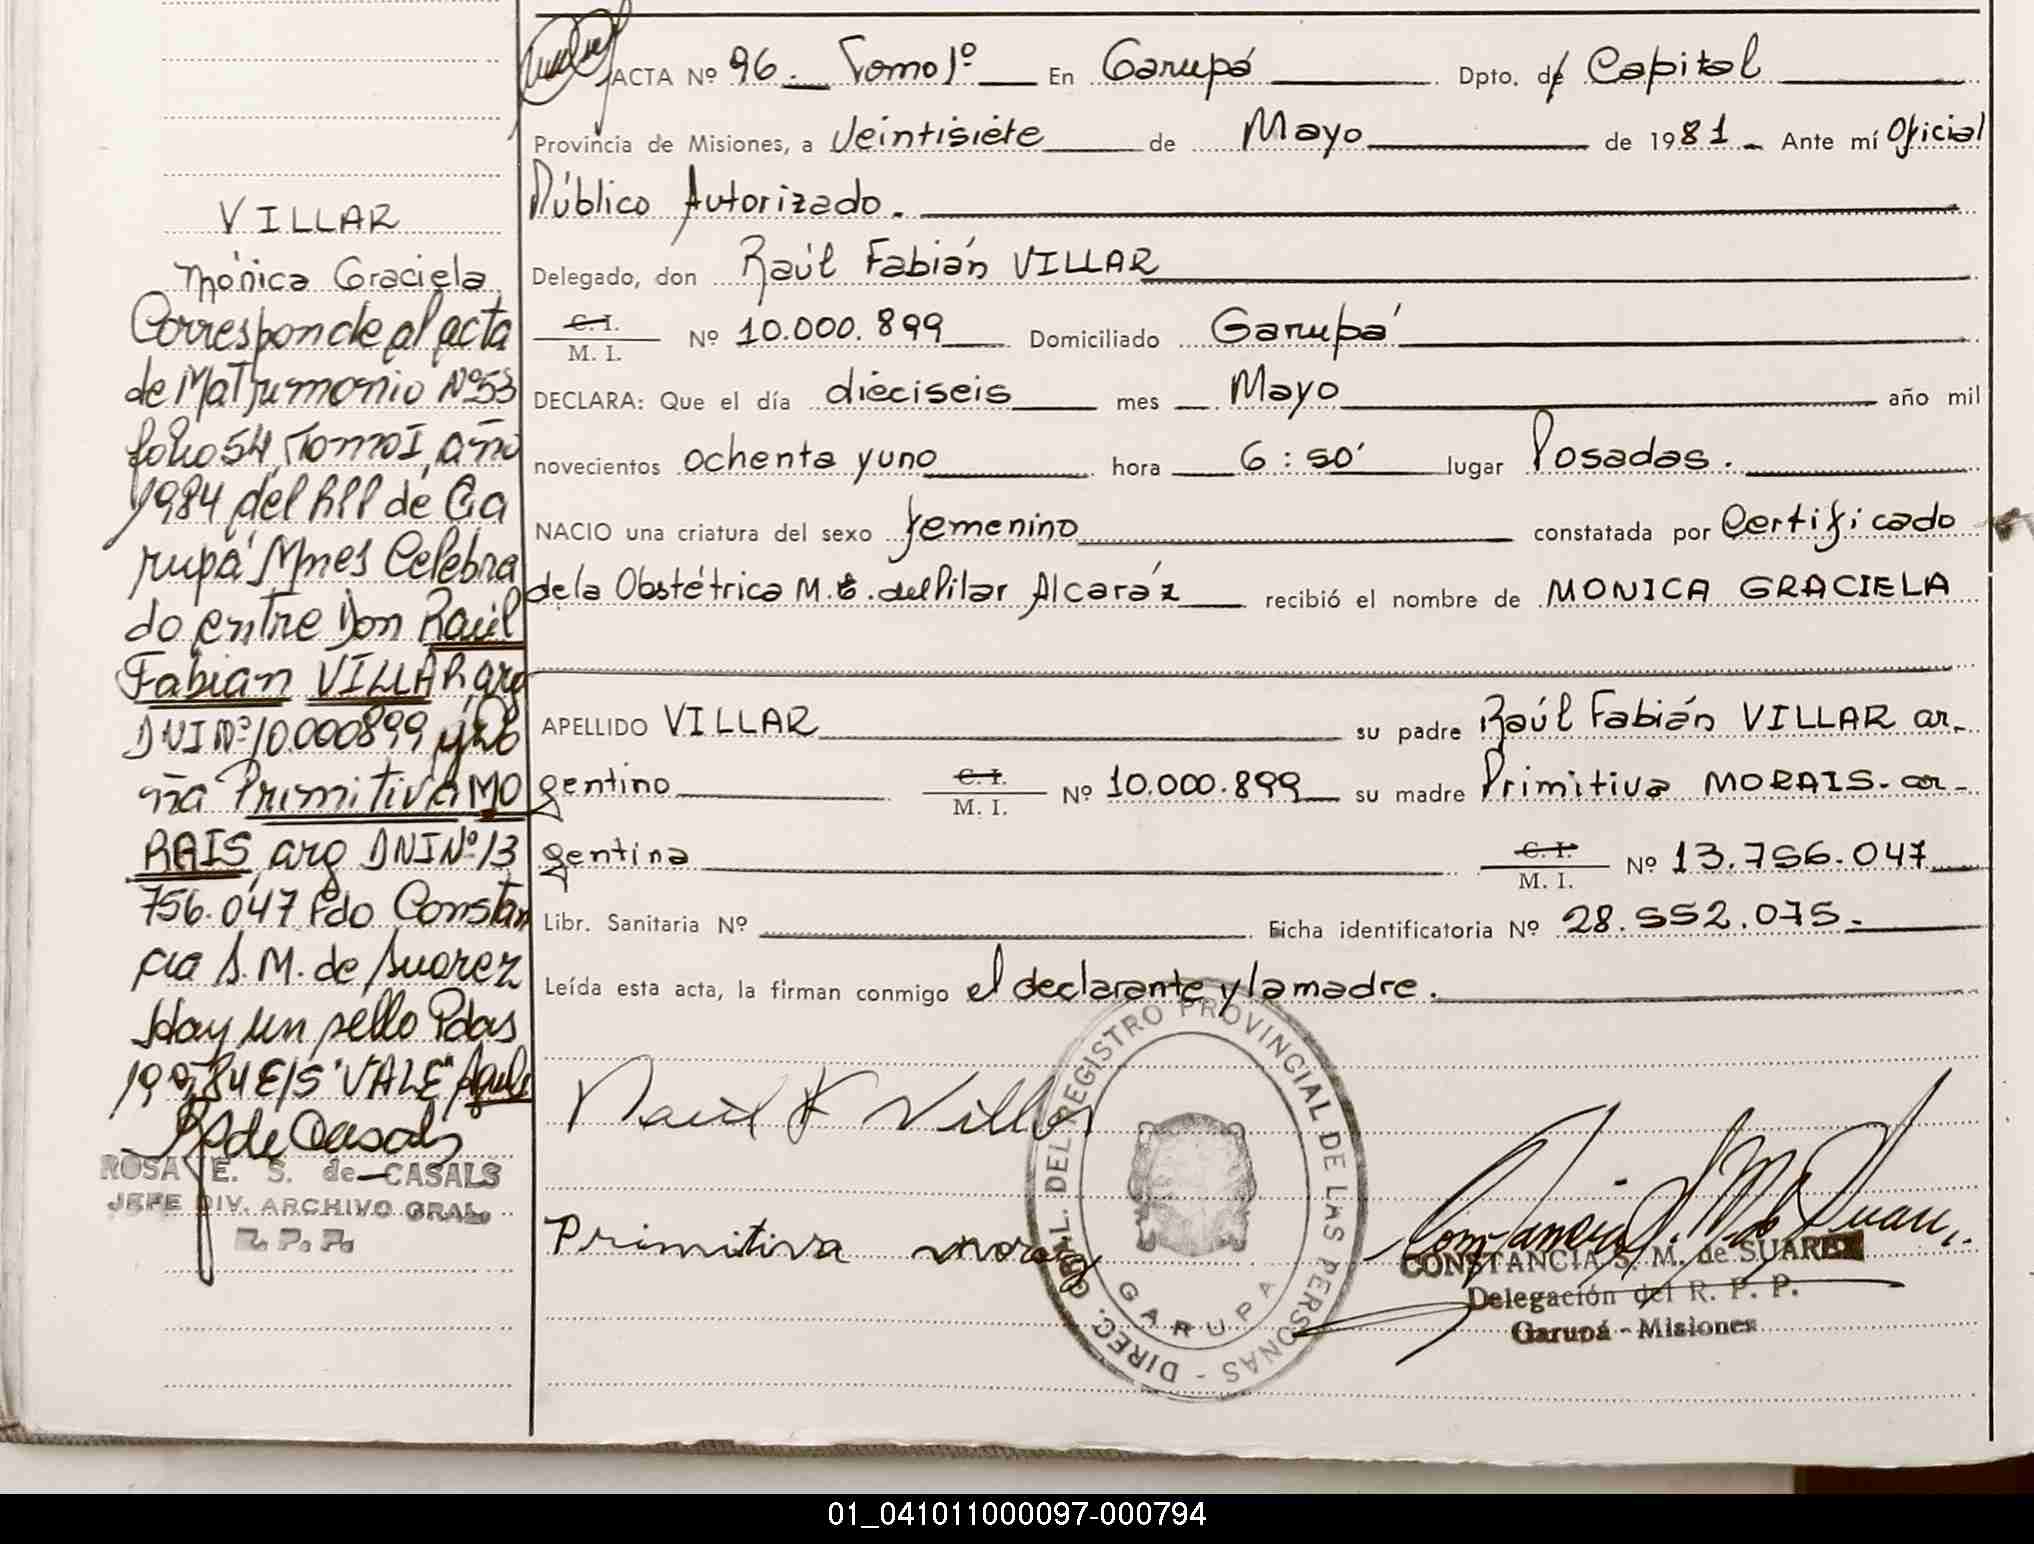 VILLAR
Mónica Graciela
Corresponde al acta
de Matrimonio Nº53
folio 54, Tomo I, año
1984 del RPP de Ga
rupá Mnes Celebra
do entre Don Raúl
Fabian VILLAR, arg
DNI Nº 10.000899 y Do
ña Primitiva MO
RAIS, arg DNI Nº 13
756.047 Fdo Constan
cia S. M. de Suarez
Hay un sello Pdas
84 E/S "VALE"
R de Casals
ROSA E. S. de CASALS
JEFE DIV. ARCHIVO GRAL.
R. P. P.
ACTA Nº 96. Tomo 1º En Garupá Dpto. de Capital
Provincia de Misiones, a Veintisiete de Mayo de 1981 Ante mí Oficial
Público Autorizado.
Delegado, don Raúl Fabián VILLAR
C. I. / M. I. Nº 10.000.899 Domiciliado Garupá
DECLARA: Que el día dieciseis mes Mayo año mil
novecientos ochenta y uno hora 6:50' lugar Posadas.
NACIO una criatura del sexo femenino constatada por Certificado
de la Obstétrica M. del Pilar Alcaráz recibió el nombre de MONICA GRACIELA
APELLIDO VILLAR su padre Raúl Fabián VILLAR ar-
gentino C. I. / M. I. Nº 10.000.899 su madre Primitiva MORAIS- ar-
gentina C. I. / M. I. Nº 13.756.047
Libr. Sanitaria Nº Ficha identificatoria Nº 28.552.075.
Leída esta acta, la firman conmigo el declarante y la madre.
Raúl F Villar
Primitiva morais
DIREC. GRAL. DEL REGISTRO PROVINCIAL DE LAS PERSONAS -
GARUPA
Constancia S. M. de Suarez
CONSTANCIA S. M. de SUAREZ
Delegación del R. P. P.
Garupá - Misiones
01_041011000097-000794